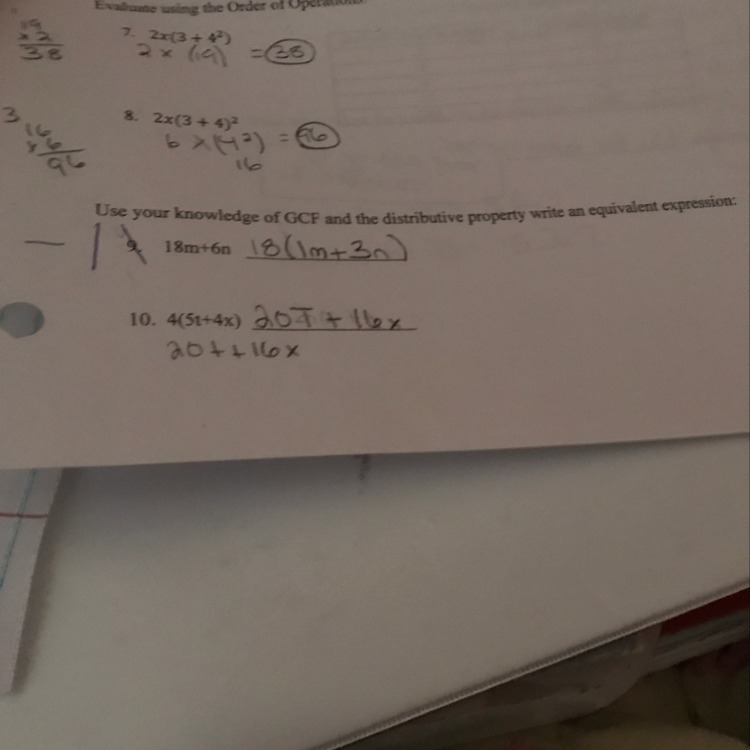 Evaluate using the Order of Operations
19
x 2
38
7. 2x(3 + 4²)
2 x (19) = 38
3
16
x 6
96
8. 2x(3 + 4)²
6 x (4²) = 96
16
Use your knowledge of GCF and the distributive property write an equivalent expression:
— 1 9. 18m+6n 18(1m+3n)
10. 4(5t+4x) 20T + 16x
20t + 16x